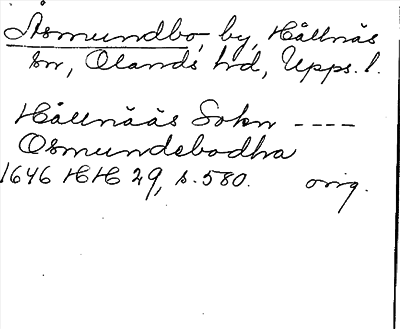 Åsmundbo, by, Hållnäs
sn, Olands hd, Upps. l.
Hållnääs Sokn ----
Osmundebodha
1646 HH 29, s. 580. orig.